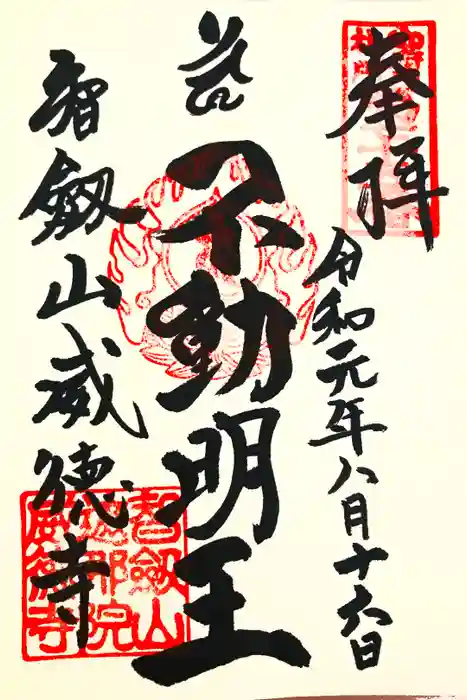 奉拝
令和元年八月十六日
不動明王
智劔山威徳寺
智劔山
遮那院
威徳寺